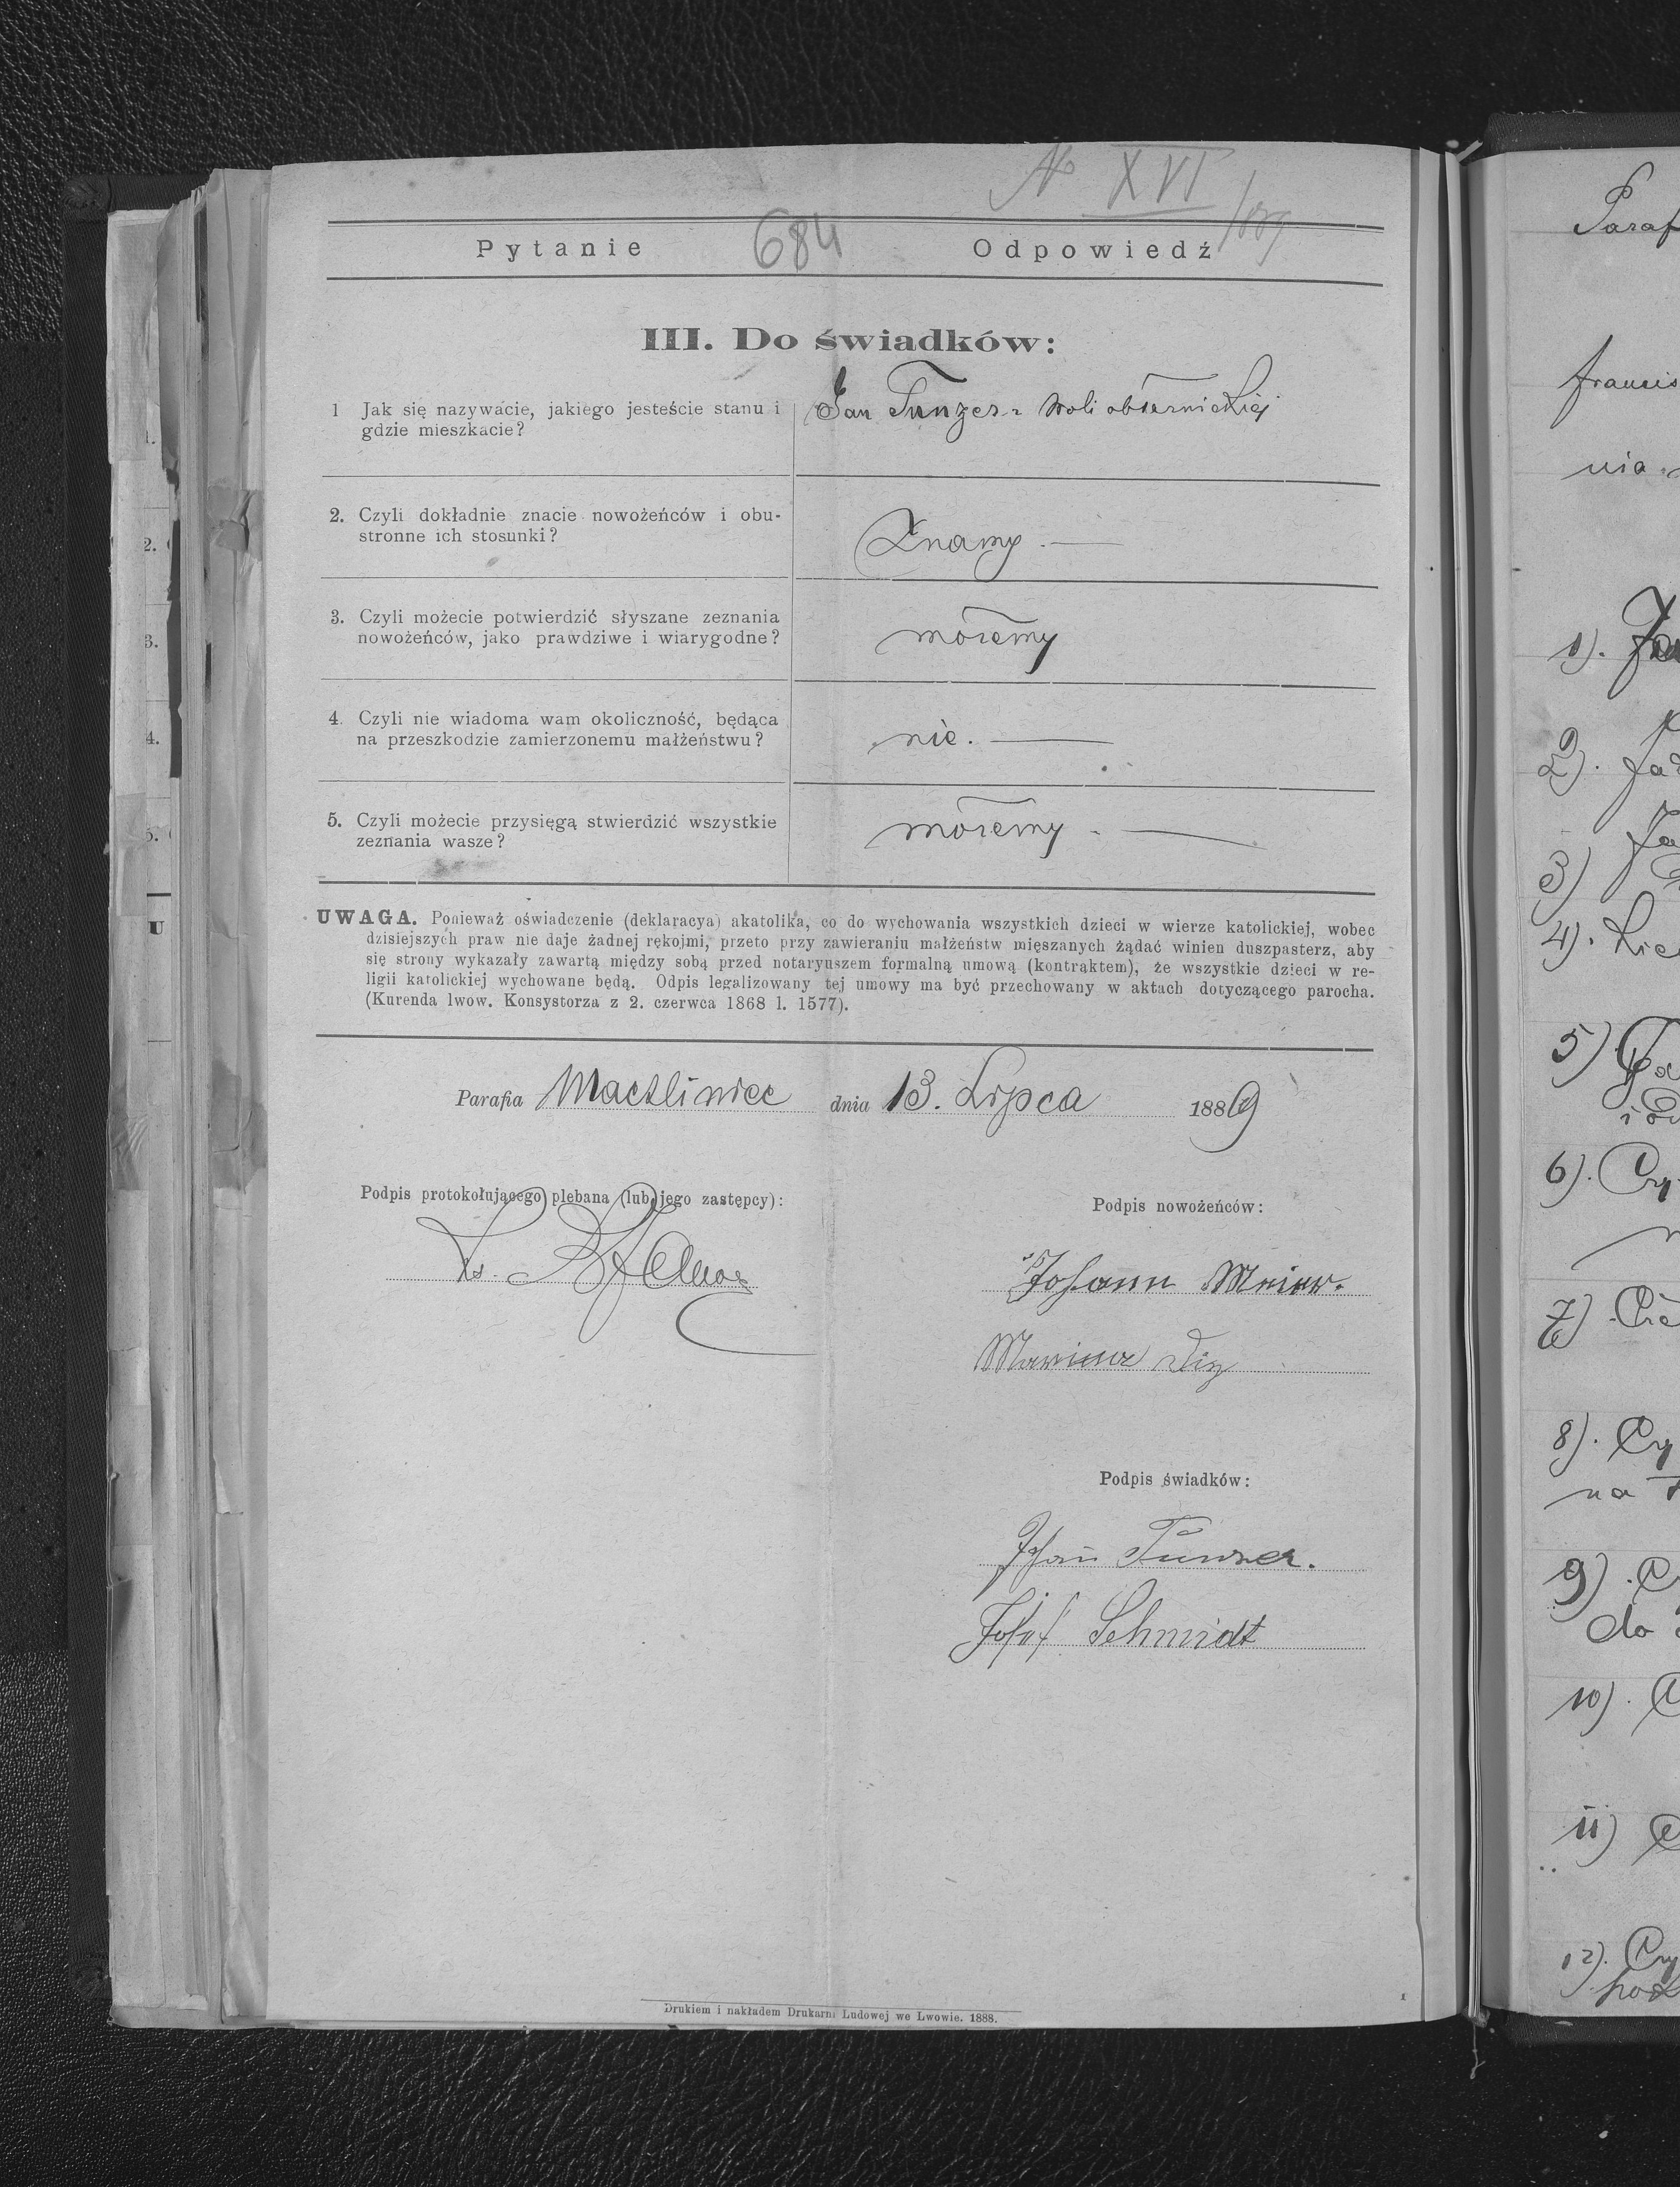 № XVI
/889
684
Pytanie Odpowiedź
III. Do świadków:
1 Jak się nazywacie, jakiego jesteście stanu i
gdzie mieszkacie?
Jan Tunzer z Woli
2. Czyli dokładnie znacie nowożeńców i obu-
stronne ich stosunki?
Znamy. —
3. Czyli możecie potwierdzić słyszane zeznania
nowożeńców, jako prawdziwe i wiarygodne?
możemy
4. Czyli nie wiadoma wam okoliczność, będąca
na przeszkodzie zamierzonemu małżeństwu?
nie. —
5. Czyli możecie przysięgą stwierdzić wszystkie
zeznania wasze?
możemy. —
UWAGA. Ponieważ oświadczenie (deklaracya) akatolika, co do wychowania wszystkich dzieci w wierze katolickiej, wobec
dzisiejszych praw nie daje żadnej rękojmi, przeto przy zawieraniu małżeństw mięszanych żądać winien duszpasterz, aby
się strony wykazały zawartą między sobą przed notaryuszem formalną umową (kontraktem), że wszystkie dzieci w re-
ligii katolickiej wychowane będą. Odpis legalizowany tej umowy ma być przechowany w aktach dotyczącego parocha.
(Kurenda lwow. Konsystorza z 2. czerwca 1868 l. 1577).
Parafia Machliniec dnia 13. Lipca 1889
Podpis protokołującego plebana (lub jego zastępcy):
Podpis nowożeńców:
X.
Johann Meier.
Marina
Podpis świadków:
Johann Tunzer.
Josef Schmidt
Drukiem i nakładem Drukarni Ludowej we Lwowie. 1888.
Paraf
francis
nia
1).
2).
3)
4).
5)
6). Czy
7)
8). Czy
na
9)
do
10).
11)
12). Czy